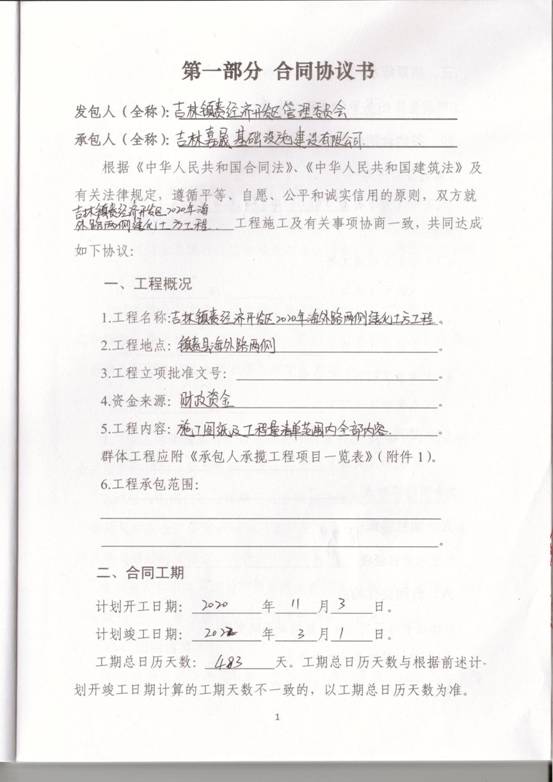 第一部分 合同协议书
发包人（全称）：吉林镇赉经济开发区管理委员会
承包人（全称）：吉林嘉晟基础设施建设有限公司
根据《中华人民共和国合同法》、《中华人民共和国建筑法》及
有关法律规定，遵循平等、自愿、公平和诚实信用的原则，双方就
吉林镇赉经济开发区2020年海
外路两侧绿化土方工程 工程施工及有关事项协商一致，共同达成
如下协议：
一、工程概况
1.工程名称：吉林镇赉经济开发区2020年海外路两侧绿化土方工程。
2.工程地点：镇赉县海外路两侧。
3.工程立项批准文号：。
4.资金来源：财政资金。
5.工程内容：施工图纸及工程量清单范围内全部内容。
群体工程应附《承包人承揽工程项目一览表》（附件1）。
6.工程承包范围：
。
二、合同工期
计划开工日期：2020年11月3日。
计划竣工日期：2022年3月1日。
工期总日历天数：483天。工期总日历天数与根据前述计
划开竣工日期计算的工期天数不一致的，以工期总日历天数为准。
1